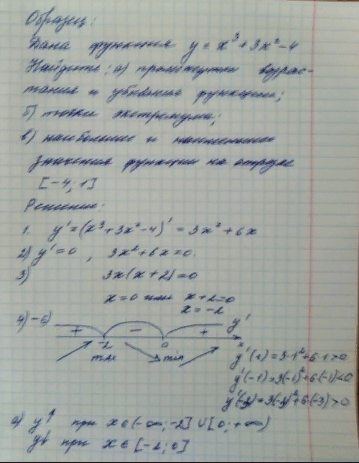 Образец:
Дана функция y = x³ + 3x² - 4
Найдите: а) промежутки возрас-
тания и убывания функции;
б) точки экстремума;
в) наибольшее и наименьшее
значения функции на отрезке
[-4; 1]
Решение:
1. y' = (x³ + 3x² - 4)' = 3x² + 6x
2) y' = 0, 3x² + 6x = 0.
3) 3x(x + 2) = 0
x = 0 или x + 2 = 0
x = -2
4) - 5) + - + y'
-2 0 x
max min
y'(1) = 3·1² + 6·1 > 0
y'(-1) = 3(-1)² + 6·(-1) < 0
y'(-3) = 3(-3)² + 6·(-3) > 0
а) y↑ при x ∈ (-∞; -2] ∪ [0; +∞)
y↓ при x ∈ [-2; 0]